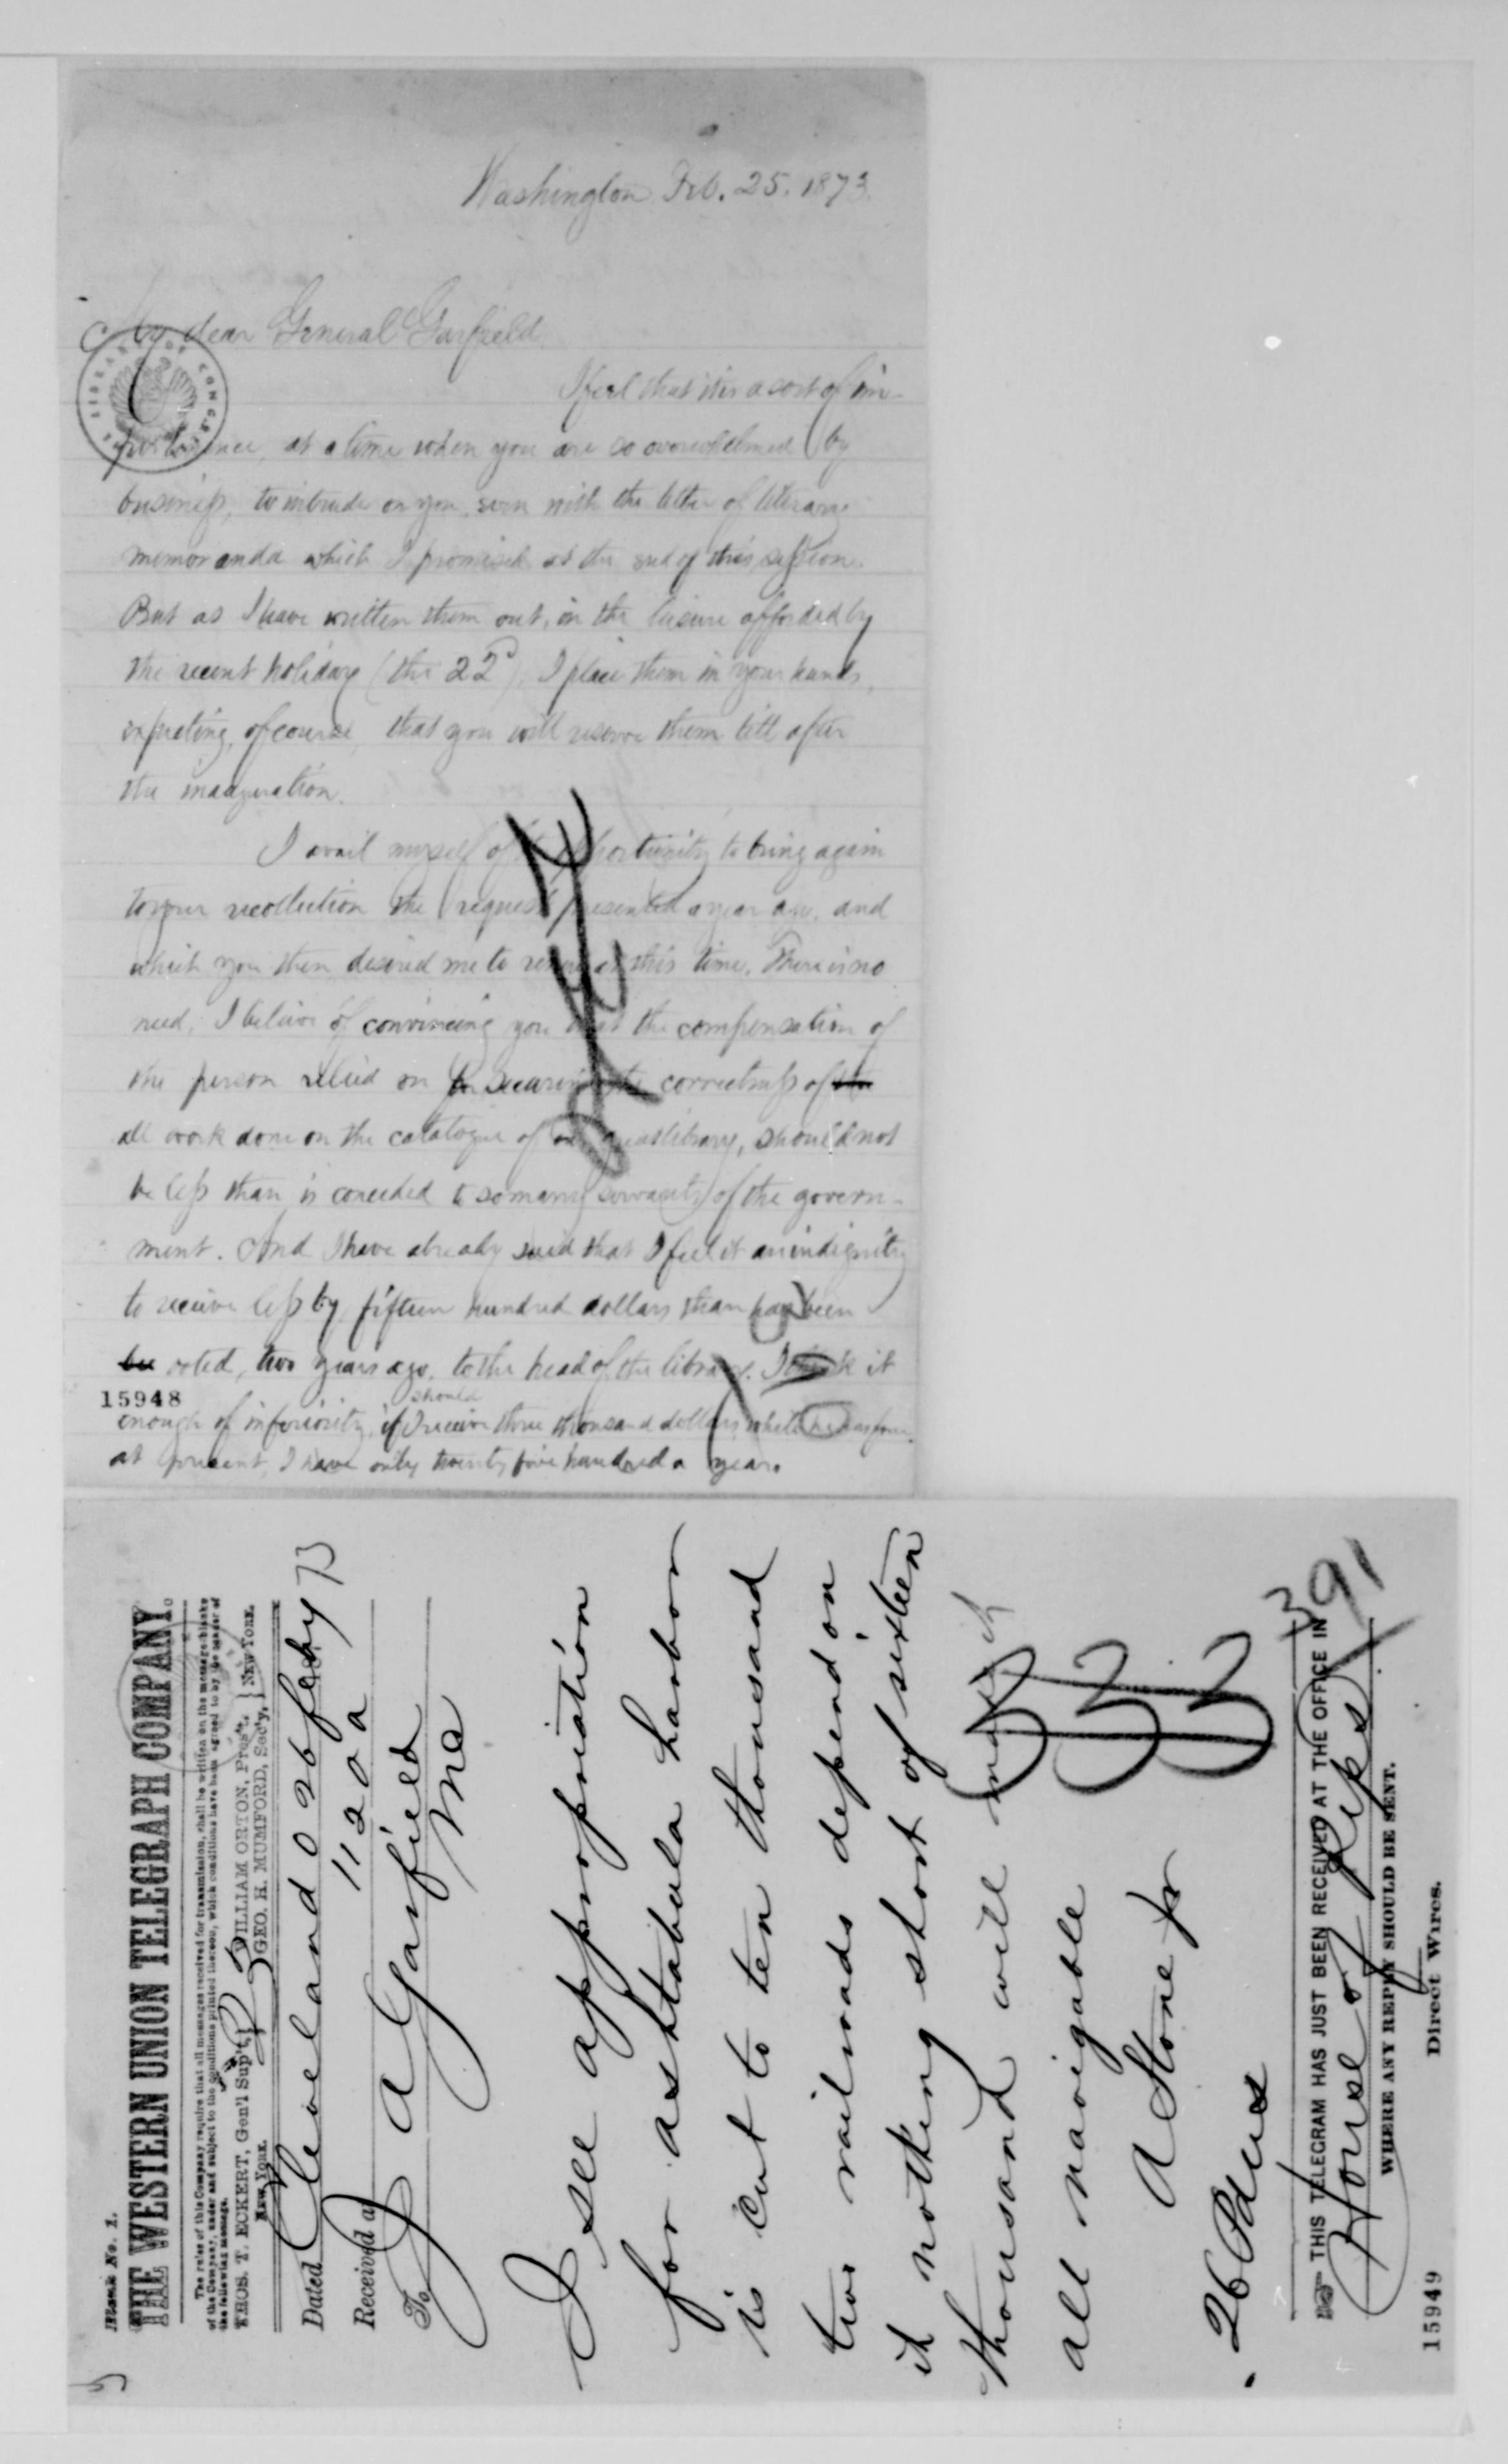 Washington Feb. 25. 1873.
My dear General Garfield.
I feel that it is a sort of im-
pertinence, at a time when you are so overwhelmed by
business, to intrude on you, even with the letter of literary
memoranda which I promised at the end of this session.
But as I have written them out, in the leisure afforded by
the recent holiday (the 22d), I place them in your hands,
expecting, of course, that you will reserve them till after
the inauguration.
I avail myself of the opportunity to bring again
to your recollection the request presented a year ago, and
which you then desired me to renew at this time. There is no
need, I believe of convincing you that the compensation of
the person relied on for securing the correctness of
all work done on the catalogue of our great library, should not
be less than is conceded to so many servants of the govern-
ment. And I have already said that I feel it an indignity
to receive less by fifteen hundred dollars than has been
voted, two years ago, to the head of the library. I think it
15948
should
enough of inferiority, if I receive three thousand dollars, while he has four.
at present, I have only twenty five hundred a year.
Blank No. 1.
THE WESTERN UNION TELEGRAPH COMPANY.
The rules of this Company require that all messages received for transmission, shall be written on the message blanks
of the Company, under and subject to the conditions printed thereon, which conditions have been agreed to by the sender of
the following message.
THOS. T. ECKERT, Gen'l Sup't, WILLIAM ORTON, Pres't, NEW YORK.
NEW YORK. GEO. H. MUMFORD, Sec'y,
Dated Cleveland O 26 feby 73
Received at 1120 a
To J A Garfield
MC
I see appropriation
for ashtabula harbor
is cut to ten thousand
two railroads depend on
it nothing short of sixteen
thousand will make it
all navigable
A Stone Jr
26 Pd
33
33
33
391
THIS TELEGRAM HAS JUST BEEN RECEIVED AT THE OFFICE IN
House of Reps
WHERE ANY REPLY SHOULD BE SENT.
Direct Wires.
15949